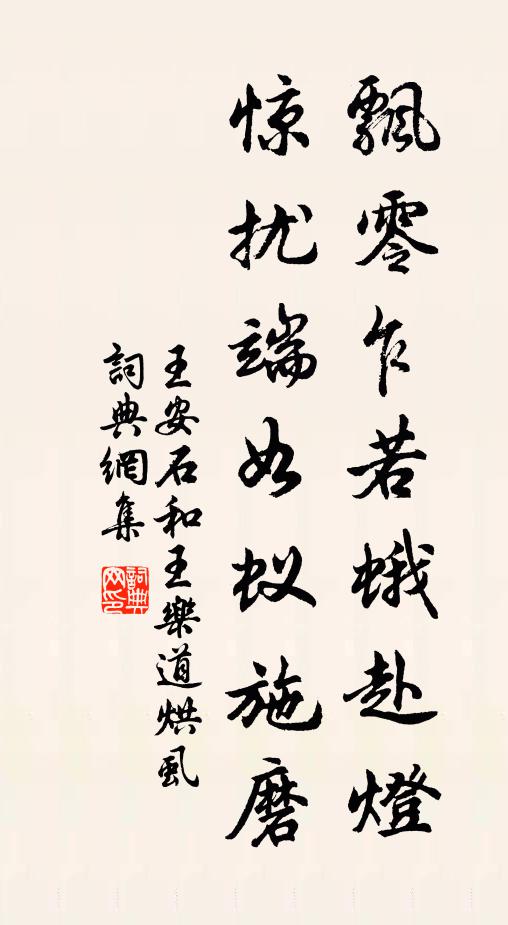 飄零乍若蛾赴燈
惊扰端如蚁施磨
王安石和王樂道烘虱
詞典網集
詞典網印